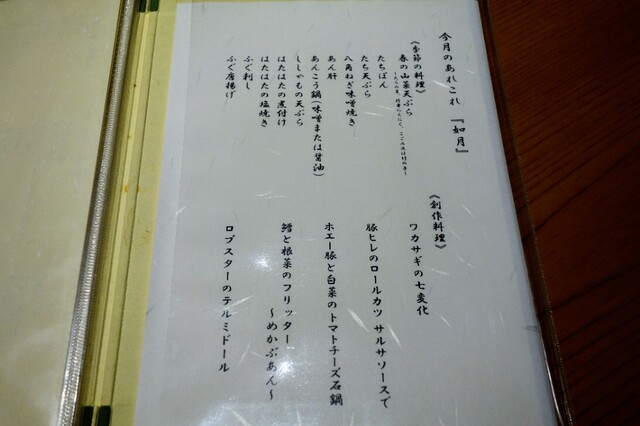 今月のあれこれ 『如月』
《季節の料理》
春の山菜天ぷら
たちぽん
たち天ぷら
八角ねぎ味噌焼き
あん肝
あんこう鍋(味噌または醤油)
ししゃもの天ぷら
はたはたの煮付け
はたはたの塩焼き
ふぐ刺し
ふぐ唐揚げ
《創作料理》
ワカサギの七変化
豚ヒレのロールカツ サルサソースで
ホエー豚と白菜のトマトチーズ石鍋
鱈と根菜のフリッター
～めかぶあん～
ロブスターのテルミドール